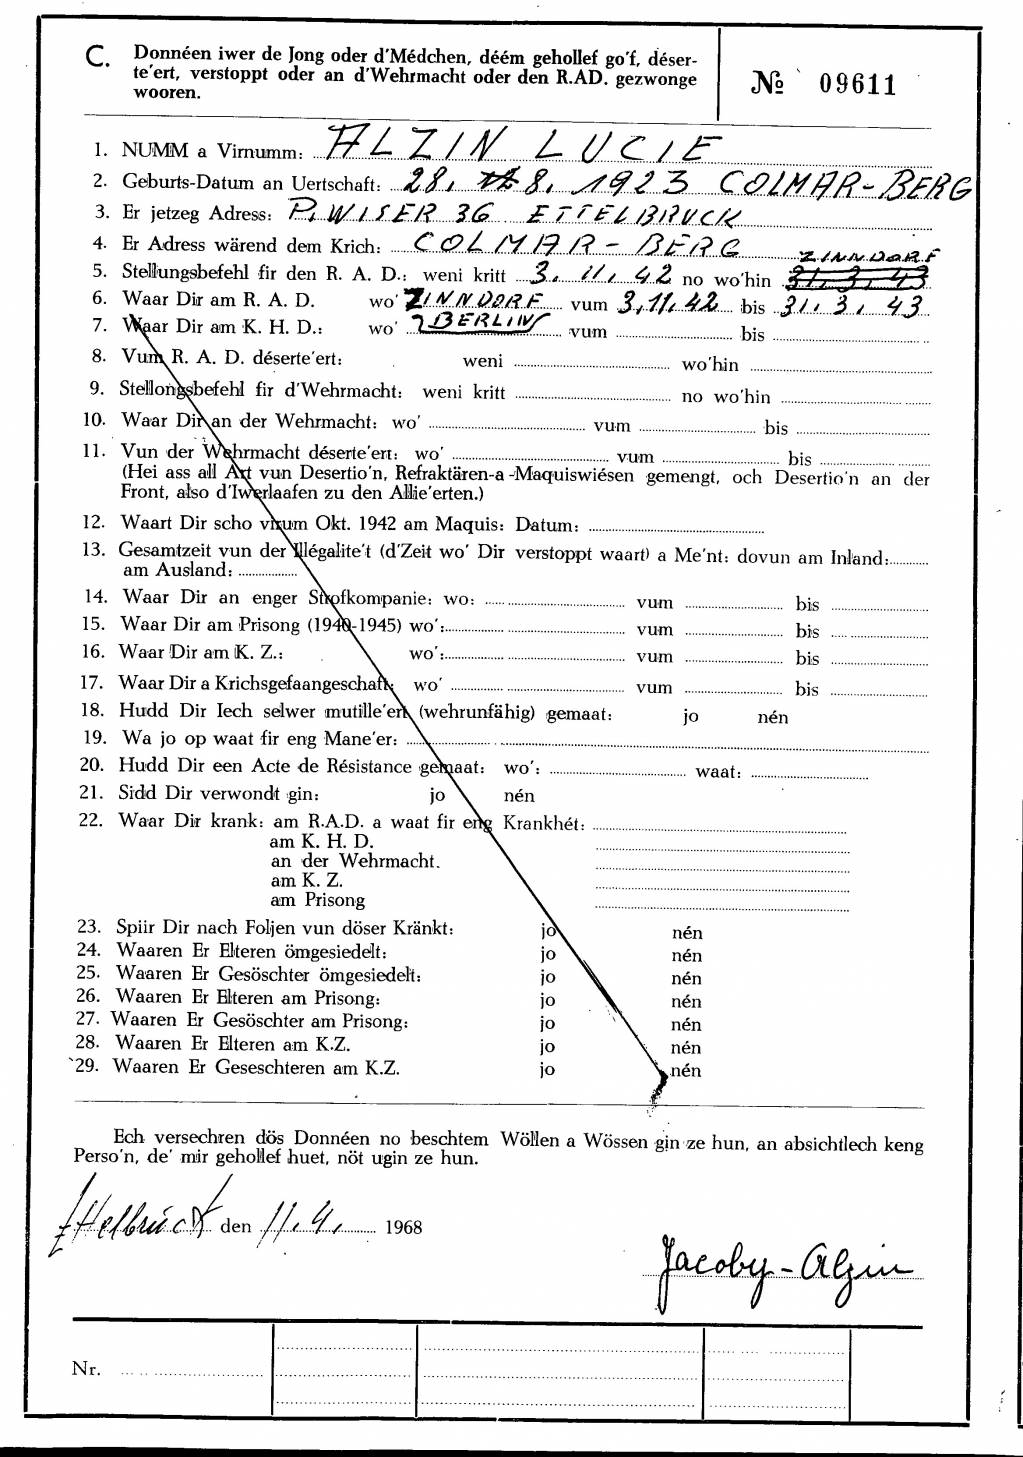 C. Donnéen iwer de Jong oder d'Médchen, déém gehollef go'f, déser-
te'ert, verstoppt oder an d'Wehrmacht oder den R.AD. gezwonge
wooren.
№ 09611
1. NUMM a Virnumm: ALZIN LUCIE
2. Geburts-Datum an Uertschaft: 28. 8. 1923 COLMAR-BERG
3. Er jetzeg Adress: P. WISER 36 ETTELBRUCK
4. Er Adress wärend dem Krich: COLMAR-BERG
ZINNDORF
5. Stellungsbefehl fir den R. A. D.: weni kritt 3. 11. 42 no wo'hin 31. 3. 43
6. Waar Dir am R. A. D. wo' ZINNDORF vum 3.11.42 bis 31. 3. 43
7. Waar Dir am K. H. D.: wo' BERLIN vum bis
8. Vum R. A. D. déserte'ert: weni wo'hin
9. Stellongsbefehl fir d'Wehrmacht: weni kritt no wo'hin
10. Waar Dir an der Wehrmacht: wo' vum bis
11. Vun der Wehrmacht déserte'ert: wo' vum bis
(Hei ass all Art vun Desertio'n, Refraktären-a-Maquiswiésen gemengt, och Desertio'n an der
Front, also d'Iwerlaafen zu den Allie'erten.)
12. Waart Dir scho virum Okt. 1942 am Maquis: Datum:
13. Gesamtzeit vun der Illégalite't (d'Zeit wo' Dir verstoppt waart) a Me'nt: dovun am Inland:
am Ausland:
14. Waar Dir an enger Strofkompanie: wo: vum bis
15. Waar Dir am Prisong (1940-1945) wo': vum bis
16. Waar Dir am K. Z.: wo': vum bis
17. Waar Dir a Krichsgefaangeschaft: wo' vum bis
18. Hudd Dir Iech selwer mutille'ert (wehrunfähig) gemaat: jo nén
19. Wa jo op waat fir eng Mane'er:
20. Hudd Dir een Acte de Résistance gemaat: wo': waat:
21. Sidd Dir verwondt gin: jo nén
22. Waar Dir krank: am R.A.D. a waat fir eng Krankhét:
am K. H. D.
an der Wehrmacht.
am K. Z.
am Prisong
23. Spiir Dir nach Foljen vun döser Kränkt: jo nén
24. Waaren Er Elteren ömgesiedelt: jo nén
25. Waaren Er Gesöschter ömgesiedelt: jo nén
26. Waaren Er Elteren am Prisong: jo nén
27. Waaren Er Gesöschter am Prisong: jo nén
28. Waaren Er Elteren am K.Z. jo nén
29. Waaren Er Geseschteren am K.Z. jo nén
Ech versechren dös Donnéen no beschtem Wöllen a Wössen gin ze hun, an absichtlech keng
Perso'n, de' mir gehollef huet, nöt ugin ze hun.
Ettelbrück den 11. 4. 1968
Jacoby-Alzin
Nr.